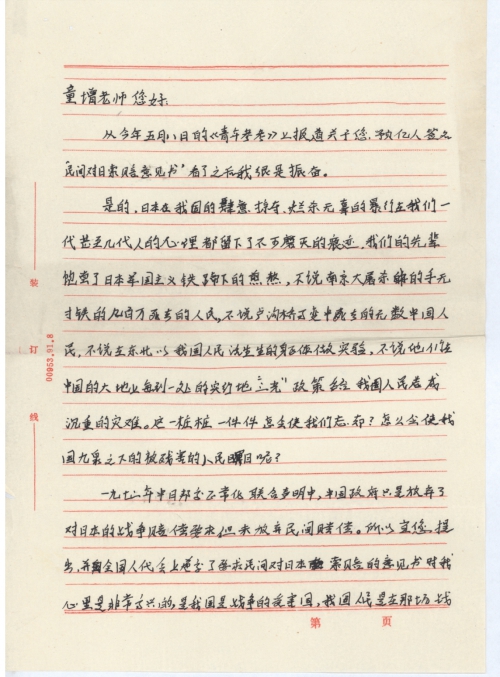 童增老师您好
从今年五月八日的《青年参考》上报道关于您、数亿人签名
"民间对日索赔意见书"看了之后我很是振奋。
是的,日本在我国的肆意掠夺、烂杀无辜的暴行在我们一
代甚至几代人的心理都留下了不可磨灭的痕迹,我们的先辈
饱尝了日本军国主义铁蹄下的煎熬,不说南京大屠杀的手无
寸铁的几百万死去的人民,不说卢沟桥事变中死去的无数中国人
民,不说在东北以我国人民活生生的身体做实验,不说他们在
中国的大地上每到一处的实行地"三光"政策给我国人民造成
沉重的灾难。这一桩桩一件件怎会使我们忘却?怎么会使我
国九泉之下的被残害的人民瞑目呢?
一九七二年中日邦交正常化联合声明中,中国政府只是放弃了
对日本的战争赔偿要求但未放弃民间赔偿。所以当您提
出,并向全国人代会上递交了要求民间对日本索赔的意见书对我
心里是非常高兴的,是我国是战争的受害国,我国人民是在那场战
第 页
装
订
线
00953.01.8